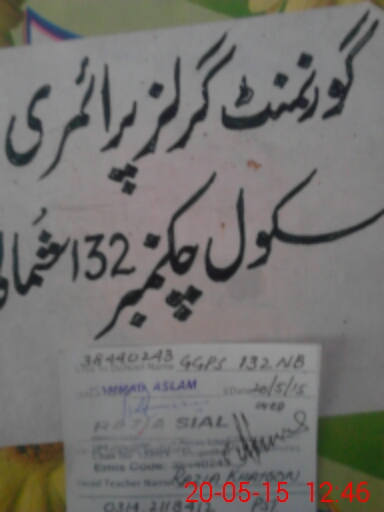 گورنمنٹ گرلز پرائمری
سکول چکنمبر 132 شمالی
38440243
GGPS 132 NB
MMAD ASLAM
Date 20/5/15
WED
RAZIA SIAL
Emis Code:
Head Teacher Name RAZIA KHATOON
0314 2118412 PST
20-05-15 12:46